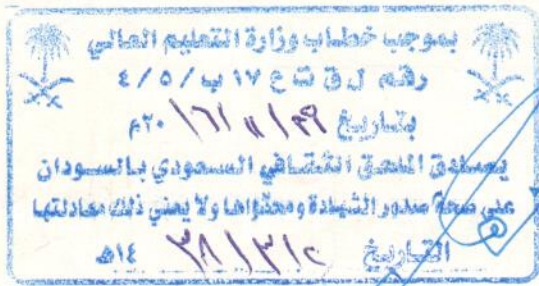 بموجب خطاب وزارة التعليم العالي
رقم ل ق ت ع ١٧ ب / ٥ / ٤
بتاريخ ٢٩ / ١١ / ٢٠١٦م
يصادق الملحق الثقافي السعودي بالسودان
على صحة صدور الشهادة ومحتواها ولا يعني ذلك معادلتها
التاريخ ٢ / ٣ / ١٤٣٨هـ